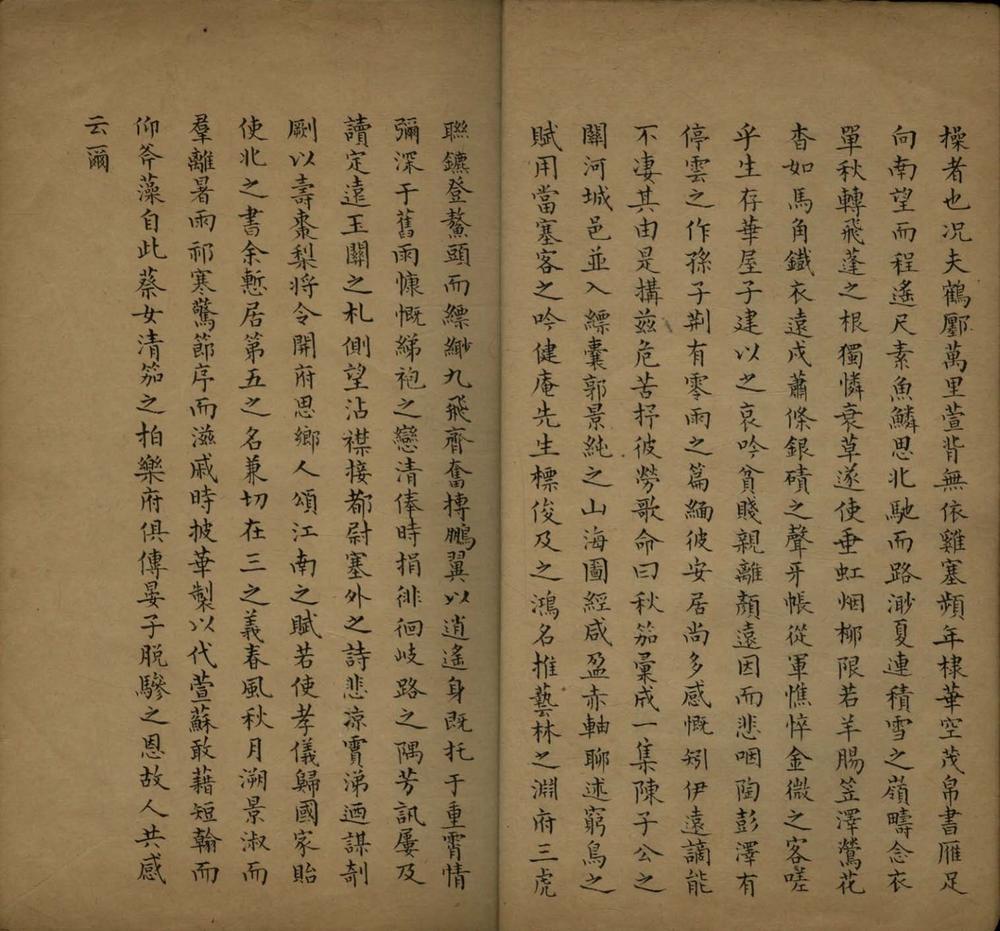 操者也况夫鶴郾萬里萱背無依雞塞頻年棣華空茂帛書雁足
向南望而程遙尺素魚鱗思北馳而路渺夏連積雪之嶺疇念衣
單秋轉飛蓬之根獨憐衰草遂使垂虹烟柳限若羊腸笠澤鶯花
杳如馬角鐵衣遠戍蕭條銀磧之聲牙帳從軍憔悴金微之客嗟
乎生存華屋子建以之哀吟貧賤親離顏遠因而悲咽陶彭澤有
停雲之作孫子荆有零雨之篇緬彼安居尚多感慨矧伊遠謫能
不凄其由是搆兹危苦抒彼勞歌命曰秋笳彙成一集陳子公之
關河城邑並入縹囊郭景純之山海圖經咸盈赤軸聊述窮鳥之
賦用當塞客之吟健庵先生標俊及之鴻名推藝林之淵府三虎
聯鑣登鰲頭而縹緲九飛齊奮摶鵬翼以逍遙身既托于重霄情
彌深于舊雨慷慨綈袍之戀清俸時捐徘徊岐路之隅芳訊屢及
讀定遠玉關之札側望沾襟接都尉塞外之詩悲凉賈涕迺謀剞
劂以壽棗梨將令開府思鄉人頌江南之賦若使孝儀歸國家貽
使北之書余慙居第五之名兼切在三之義春風秋月溯景淑而
羣離暑雨祁寒驚節序而滋戚時披華製以代萱蘇敢藉短翰而
仰斧藻自此蔡女清笳之拍樂府俱傳晏子脱驂之恩故人共感
云爾